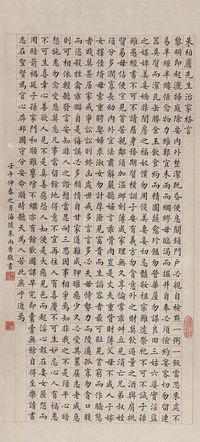 朱柏廬先生治家格言
黎明即起灑掃庭除要內外整潔既昏便息關鎖門戶必親自檢點一粥一飯當思來處不
易半絲半縷恆念物力維艱宜未雨而綢繆毋臨渴而掘井自奉必須儉約宴客切勿留連
器具質而潔瓦缶勝金玉飲食約而精園蔬愈珍饈勿營華屋勿謀良田三姑六婆實淫盜
之媒婢美妾嬌非閨房之福奴僕勿用俊美妻妾切忌豔妝祖宗雖遠祭祀不可不誠子孫
雖愚經書不可不讀居身務期質樸訓子要有義方勿貪意外之財勿飲過量之酒與肩挑
貿易毋佔便宜見貧苦親鄰須加溫卹刻薄成家理無久享倫常乖舛立見消亡兄弟叔姪
須分多潤寡長幼內外宜法肅辭嚴聽婦言乖骨肉豈是丈夫重資財薄父母不成人子嫁
女擇佳壻毋索重聘娶媳求淑女勿計厚奩見富貴而生諂容者最可恥遇貧窮而作驕態
者賤莫甚居家戒爭訟訟則終凶處世戒多言言多必失毋恃勢力而凌逼孤寡勿貪口腹
而恣殺牲禽乖僻自是悔誤必多頹惰自甘家道難成狎暱惡少久必受其累屈志老成急
則可相依輕聽發言安知非人之譖訴當忍耐三思因事相爭焉知非我之不是須平心暗
想施惠無念受恩莫忘凡事當留餘地得意不宜再往人有喜慶不可生妒忌心人有禍患
不可生喜幸心善欲人見不是真善惡恐人知便是大惡見色而起淫心報在妻女匿怨而
用暗箭禍延子孫家門和順雖饔飧不繼亦有餘歡國課早完即囊橐無餘自得至樂讀書
志在聖賢為官心存邦國守分安命順時聽天為人若此庶乎近焉
壬午仲春之月海陵朱敬書